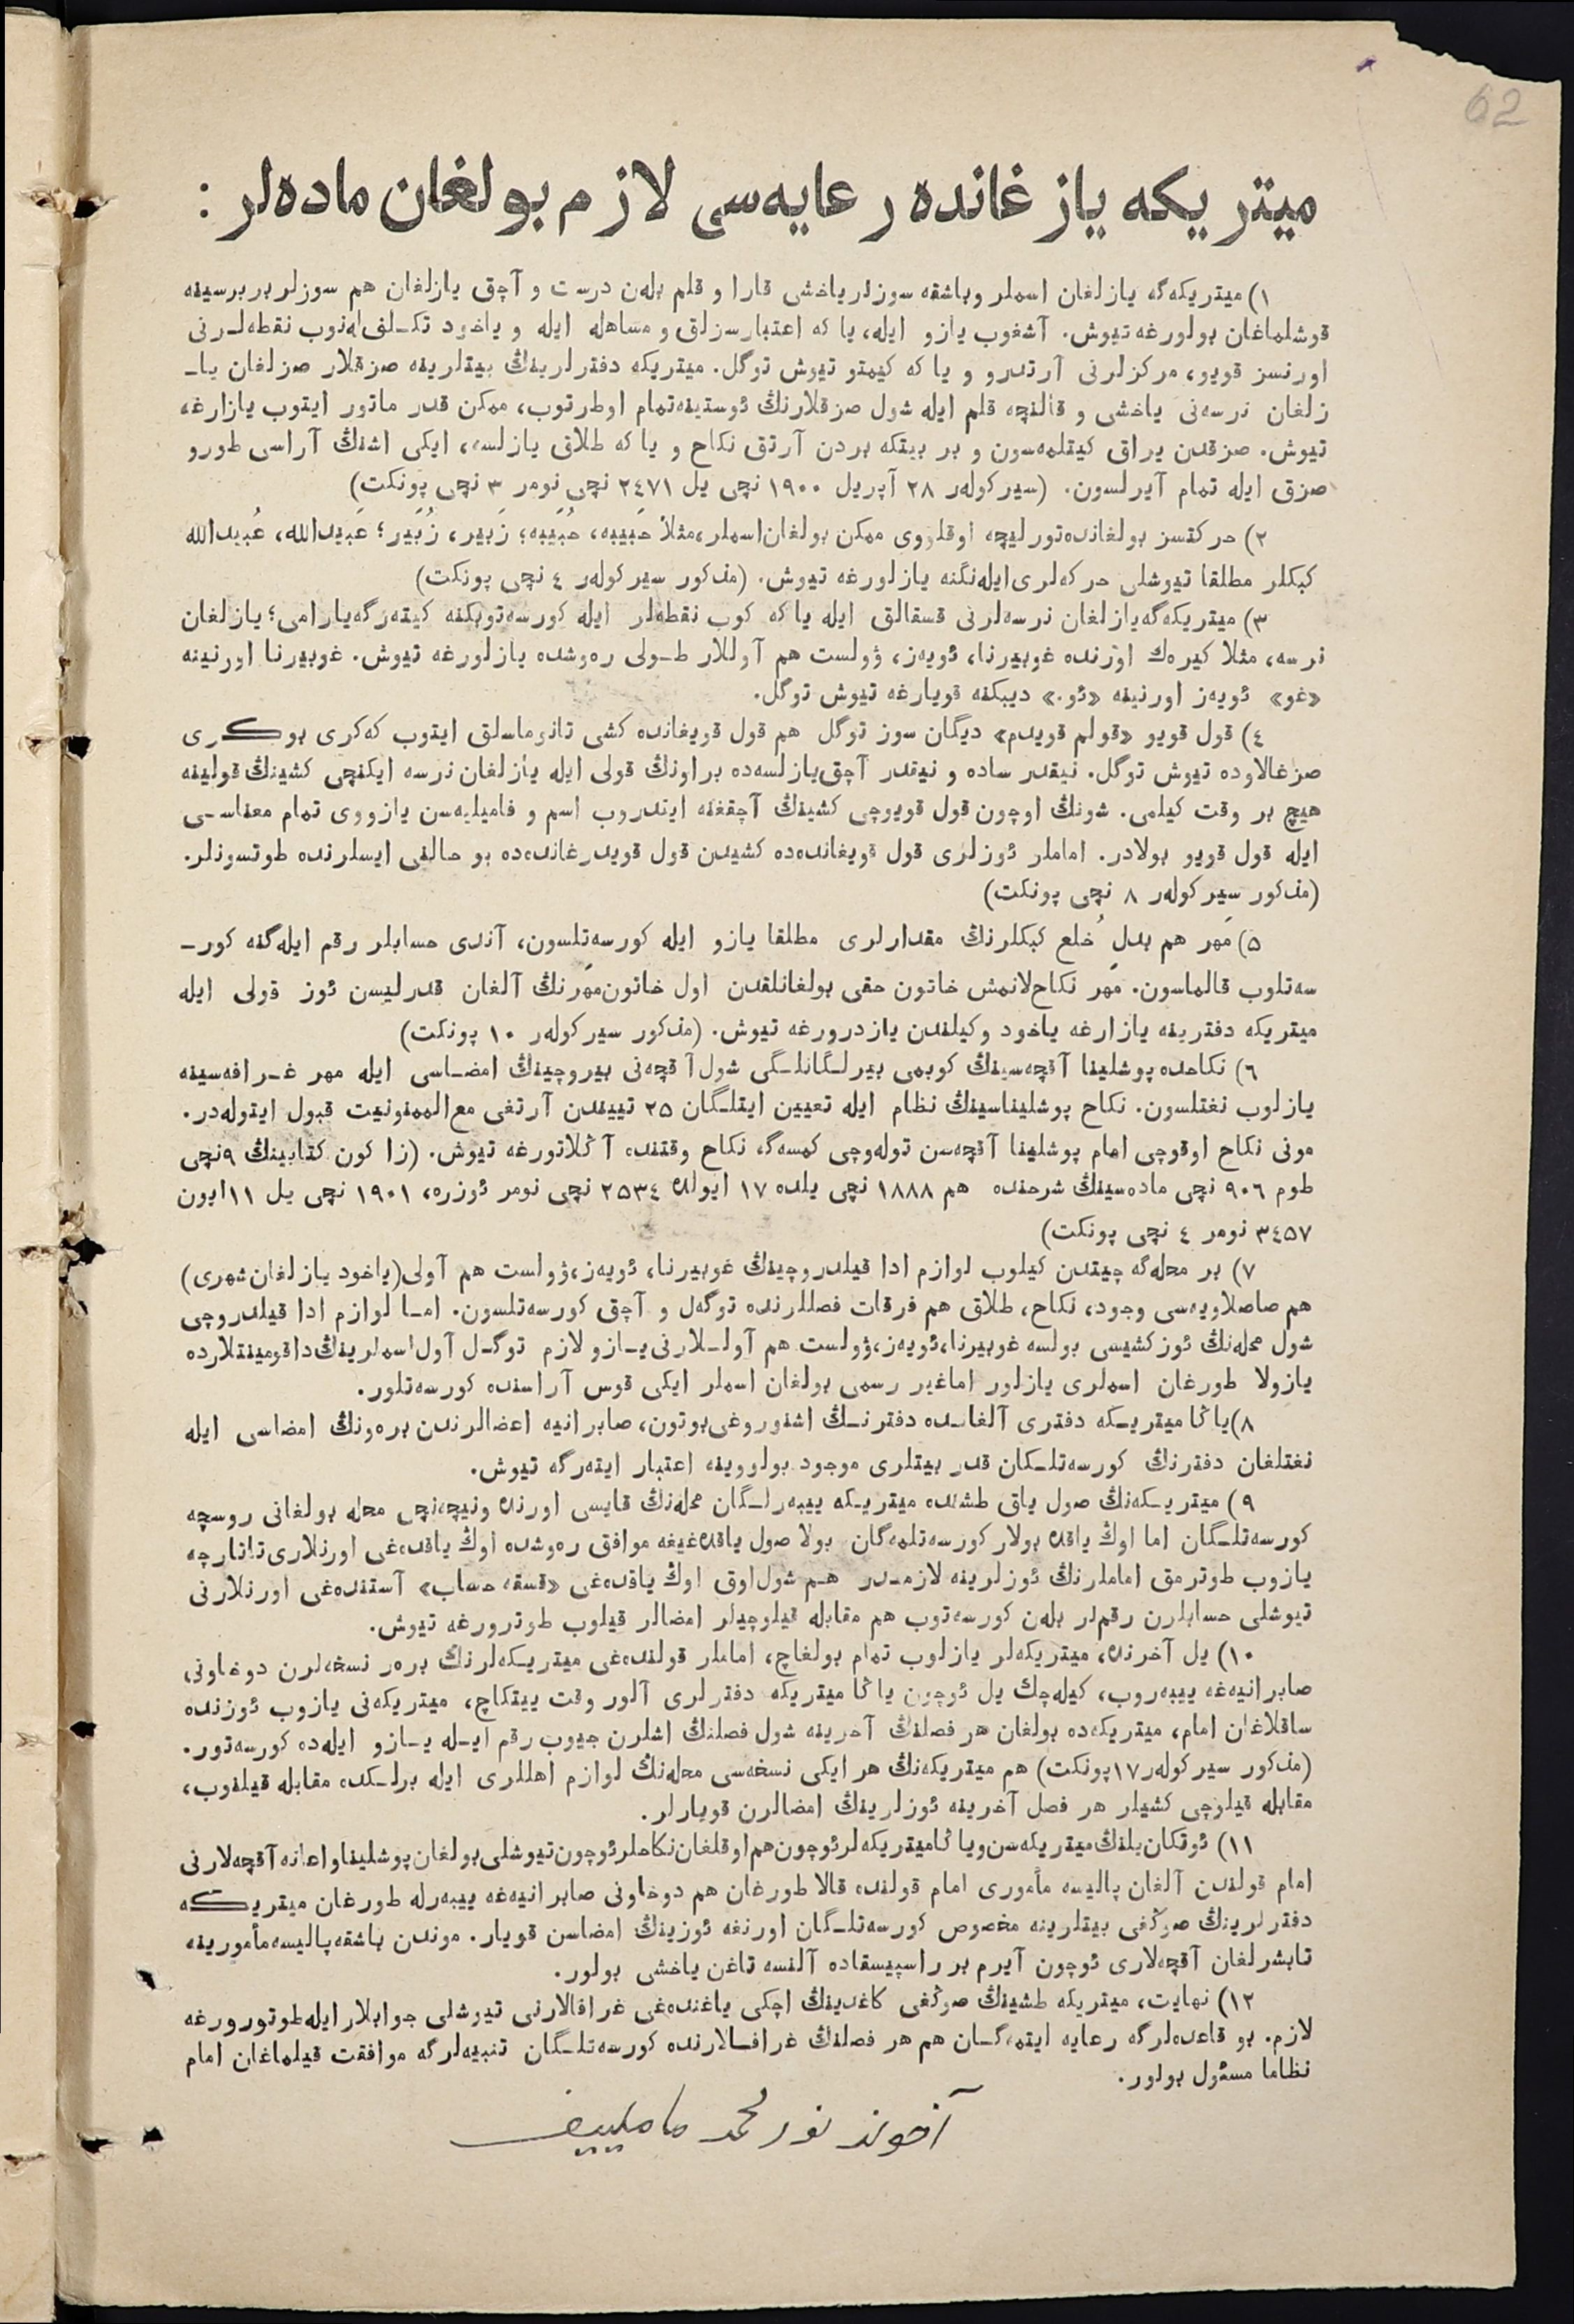 62
ميتريكه يازغانده رعايه‌سى لازم بولغان ماده‌لر :
١) ميتريكه‌گه يازلغان اسملر وباشقه سوزلرياخشى قارا و قلم بله‌ن درست و آچق يازلغان هم سوزلر بربرسينه
قوشلماغان بولورغه تيوش. آشغوب يازو ايله، يا كه اعتبارسزلق و مساهله ايله و ياخود تكـلف‌له‌نوب نقطه‌لـرنى
اورنسز قويو، مركزلرنى آرتدرو و يا كه كيمتو تيوش توگل. ميتريكه دفترلرينڭ بيتلرينه صزقلار صزلغان يا-
زلغان نرسه‌نى ياخشى و قالنچه قلم ايله شول صزقلارنڭ ئوستينه‌تمام اوطرتوب، ممكن قدر ماتور ايتوب يازارغه
تيوش. صزقدن يراق كيتلمه‌سون و بر بيتكه بردن آرتق نكاح و يا كه طلاق يازلسه، ايكى اشنڭ آراسى طورو
صزق ايله تمام آيرلسون. (سيركوله‌ر ٢٨ آپريل ١٩٠٠ نچى يل ٢٤٧١ نچى نومر ٣ نچى پونكت)
٢) حركتسز بولغانده‌تورليچه اوقلووى ممكن بولغان‌اسملر،مثلا حَبيبه، حُبيبه؛ زَبير، زُبير؛ عَبيدالله، عُبيدالله
كبكلر مطلقا تيوشلى حركه‌لرى‌ايله‌نگنه يازلورغه تيوش. (مذكور سيركوله‌ر ٤ نچى پونكت)
٣) ميتريكه‌گه‌يازلغان نرسه‌لرنى قسقالق ايله يا كه كوب نقطه‌لر ايله كورسه‌توبكنه كيته‌رگه‌يارامى؛ يازلغان
نرسه، مثلا كيره‌ك اوزنده غوبيرنا، ئويه‌ز، ۋولست هم آوللار طـولى ره‌وشده يازلورغه تيوش. غوبيرنا اورنينه
«غو» ئويه‌ز اورنينه «ئو.» ديبكنه قويارغه تيوش توگل.
٤) قول قويو «قولم قويدم» ديگان سوز توگل هم قول قويغانده كشى تانوماسلق ايتوب كه‌كرى بوكـرى
صزغالاوده تيوش توگل. نيقدر ساده و نيقدر آچق‌يازلسه‌ده براونڭ قولى ايله يازلغان نرسه ايكنچى كشينڭ قولينه
هيچ بر وقت كيلمى. شونڭ اوچون قول قويوچى كشينڭ آچقغنه ايتدروب اسم و فاميليه‌سن يازووى تمام معناسـى
ايله قول قويو بولادر. اماملر ئوزلرى قول قويغانده‌ده كشيدن قول قويدرغانده‌ده بو حالنى ايسلرنده طوتسونلر.
(مذكور سيركوله‌ر ٨ نچى پونكت)
٥) مَهر هم بدل خُلع كبكلرنڭ مقدارلرى مطلقا يازو ايله كورسه‌تلسون، آندى حسابلر رقم ايله‌گنه كور-
سه‌تلوب قالماسون. مَهر نكاح‌لانمش خاتون حقى بولغانلقدن اول خاتون‌مهرنڭ آلغان قدرليسن ئوز قولى ايله
ميتريكه دفترينه يازارغه ياخود وكيلندن يازدرورغه تيوش. (مذكور سيركوله‌ر ١٠ پونكت)
٦) نكاحده پوشلينا آقچه‌سينڭ كوبمى بيرلـگانلـگى شول آقچه‌نى بيروچينڭ امضـاسى ايله مهر غـرافه‌سينه
يازلوب نغتلسون. نكاح پوشليناسينڭ نظام ايله تعيين ايتلـگان ٢٥ تييندن آرتغى مع‌الممنونيت قبول ايتوله‌در.
مونى نكاح اوقوچى امام پوشلينا آقچه‌سن توله‌وچى كمسه‌گه نكاح وقتنده آڭلاتورغه تيوش. (زاكون كتابينڭ ٩نچى
طوم ٩٠٦ نچى ماده‌سينڭ شرحنده هم ١٨٨٨ نچى يلده ١٧ ايولده ٢٥٣٤ نچى نومر ئوزره، ١٩٠١ نچى يل ١١ ايون
٣٤٥٧ نومر ٤ نچى پونكت)
٧) بر محله‌گه چيتدن كيلوب لوازم ادا قيلدروچينڭ غوبيرنا، ئويه‌ز،ۋولست هم آولى(ياخود يازلغان‌شهرى)
هم صاصلاويه‌سى وجود، نكاح، طلاق هم فرقات فصللرنده توگه‌ل و آچق كورسه‌تلسون. امـا لوازم ادا قيلدروچى
شول محله‌نڭ ئوزكشيسى بولسه غوبيرنا،ئويه‌ز،ۋولست هم آولـلارنى يـازو لازم توگـل آول‌اسملرينڭ‌داقومينتلارده
يازولا طورغان اسملرى يازلور اماغير رسمى بولغان اسملر ايكى قوس آراسنده كورسه‌تلور.
٨)ياڭا ميتريـكه دفترى آلغانـده دفترنـڭ اشنوروغى‌بوتون، صابرانيه اعضالرندن بره‌ونڭ امضاسى ايله
نغتلغان دفترنڭ كورسه‌تلـكان قدر بيتلرى موجود بولووينه اعتبار ايته‌رگه تيوش.
٩) ميتريـكه‌نڭ صول ياق طشنده ميتريـكه ييبه‌رلـگان محله‌نڭ قايسى اورنده ونيچه‌نچى محله بولغانى روسچه
كورسه‌تلـگان اما اوڭ ياقده بولار كورسه‌تلمه‌گان بولا صول ياقده‌غيغه موافق ره‌وشده اوڭ ياقده‌غى اورنلارى‌تاتارچه
يازوب طوترمق اماملرنڭ ئوزلرينه لازمـدر هـم شول‌اوق اوڭ ياقده‌غى «قسقه حساب» آستنده‌غى اورنلارنى
تيوشلى حسابلرن رقملر بله‌ن كورسه‌توب هم مقابله قيلوچيلر امضالر قيلوب طوترورغه تيوش.
١٠) يل آخرنده، ميتريكه‌لر يازلوب تمام بولغاچ، اماملر قولنده‌غى ميتريـكه‌لرنڭ بره‌ر نسخه‌لرن دوخاونى
صابرانيه‌غه ييبه‌روب، كيله‌چك يل ئوچون ياڭا ميتريكه دفترلرى آلور وقت ييتكاچ، ميتريكه‌نى يازوب ئوزنده
ساقلاغان امام، ميتريكه‌ده بولغان هر فصلنڭ آخرينه شول فصلنڭ اشلرن جيوب رقم ايـله يـازو ايله‌ده كورسه‌تور.
(مذكور سيركوله‌ر ١٧پونكت) هم ميتريكه‌نڭ هر ايكى نسخه‌سى محله‌نڭ لوازم اهللرى ايله برلـكده مقابله قيلنوب،
مقابله قيلوچى كشيلر هر فصل آخرينه ئوزلرينڭ امضالرن قويارلر.
١١) ئوتكان يلنڭ ميتريكه‌سن وياڭاميتريكه‌لرئوچون هم اوقلغان نكاحلرئوچون تيوشلى بولغان پوشليناواعانه آقچه‌لارنى
امام قولندن آلغان پاليسه مأمورى امام قولنده قالا طورغان هم دوخاونى صابرانيه‌غه ييبه‌رله طورغان ميتريـكه
دفترلرينڭ صوڭغى بيتلرينه مخصوص كورسه‌تلـگان اورنغه ئوزينڭ امضاسن قويار. موندن باشقه پاليسه مأمورينه
تابشرلغان آقچه‌لارى ئوچون آيرم بر راسپيسقاده آلنسه تاغن ياخشى بولور.
١٢) نهايت، ميتريكه طشينڭ صوڭغى كاغدينڭ اچكى ياغنده‌غى غرافالارنى تيوشلى جوابلار ايله طوتورورغه
لازم. بو قاعده‌لرگه رعايه ايتمه‌گـان هم هر فصلنڭ غرافـالارنده كورسه‌تلـگان تنبيه‌لرگه موافقت قيلماغان امام
نظاما مسئول بولور.
آخوند نورمحمد مامليیف